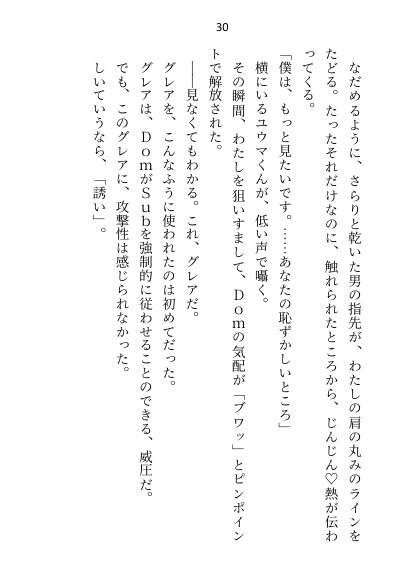 30
なだめるように、さらりと乾いた男の指先が、わたしの肩の丸みのラインを
たどる。たったそれだけなのに、触れられたところから、じんじん♡熱が伝わ
ってくる。
「僕は、もっと見たいです。……あなたの恥ずかしいところ」
横にいるユウマくんが、低い声で囁く。
その瞬間、わたしを狙いすまして、Ｄｏｍの気配が「ブワッ」とピンポイン
トで解放された。
――見なくてもわかる。これ、グレアだ。
グレアを、こんなふうに使われたのは初めてだった。
グレアは、ＤｏｍがＳｕｂを強制的に従わせることのできる、威圧だ。
でも、このグレアに、攻撃性は感じられなかった。
しいていうなら、「誘い」。